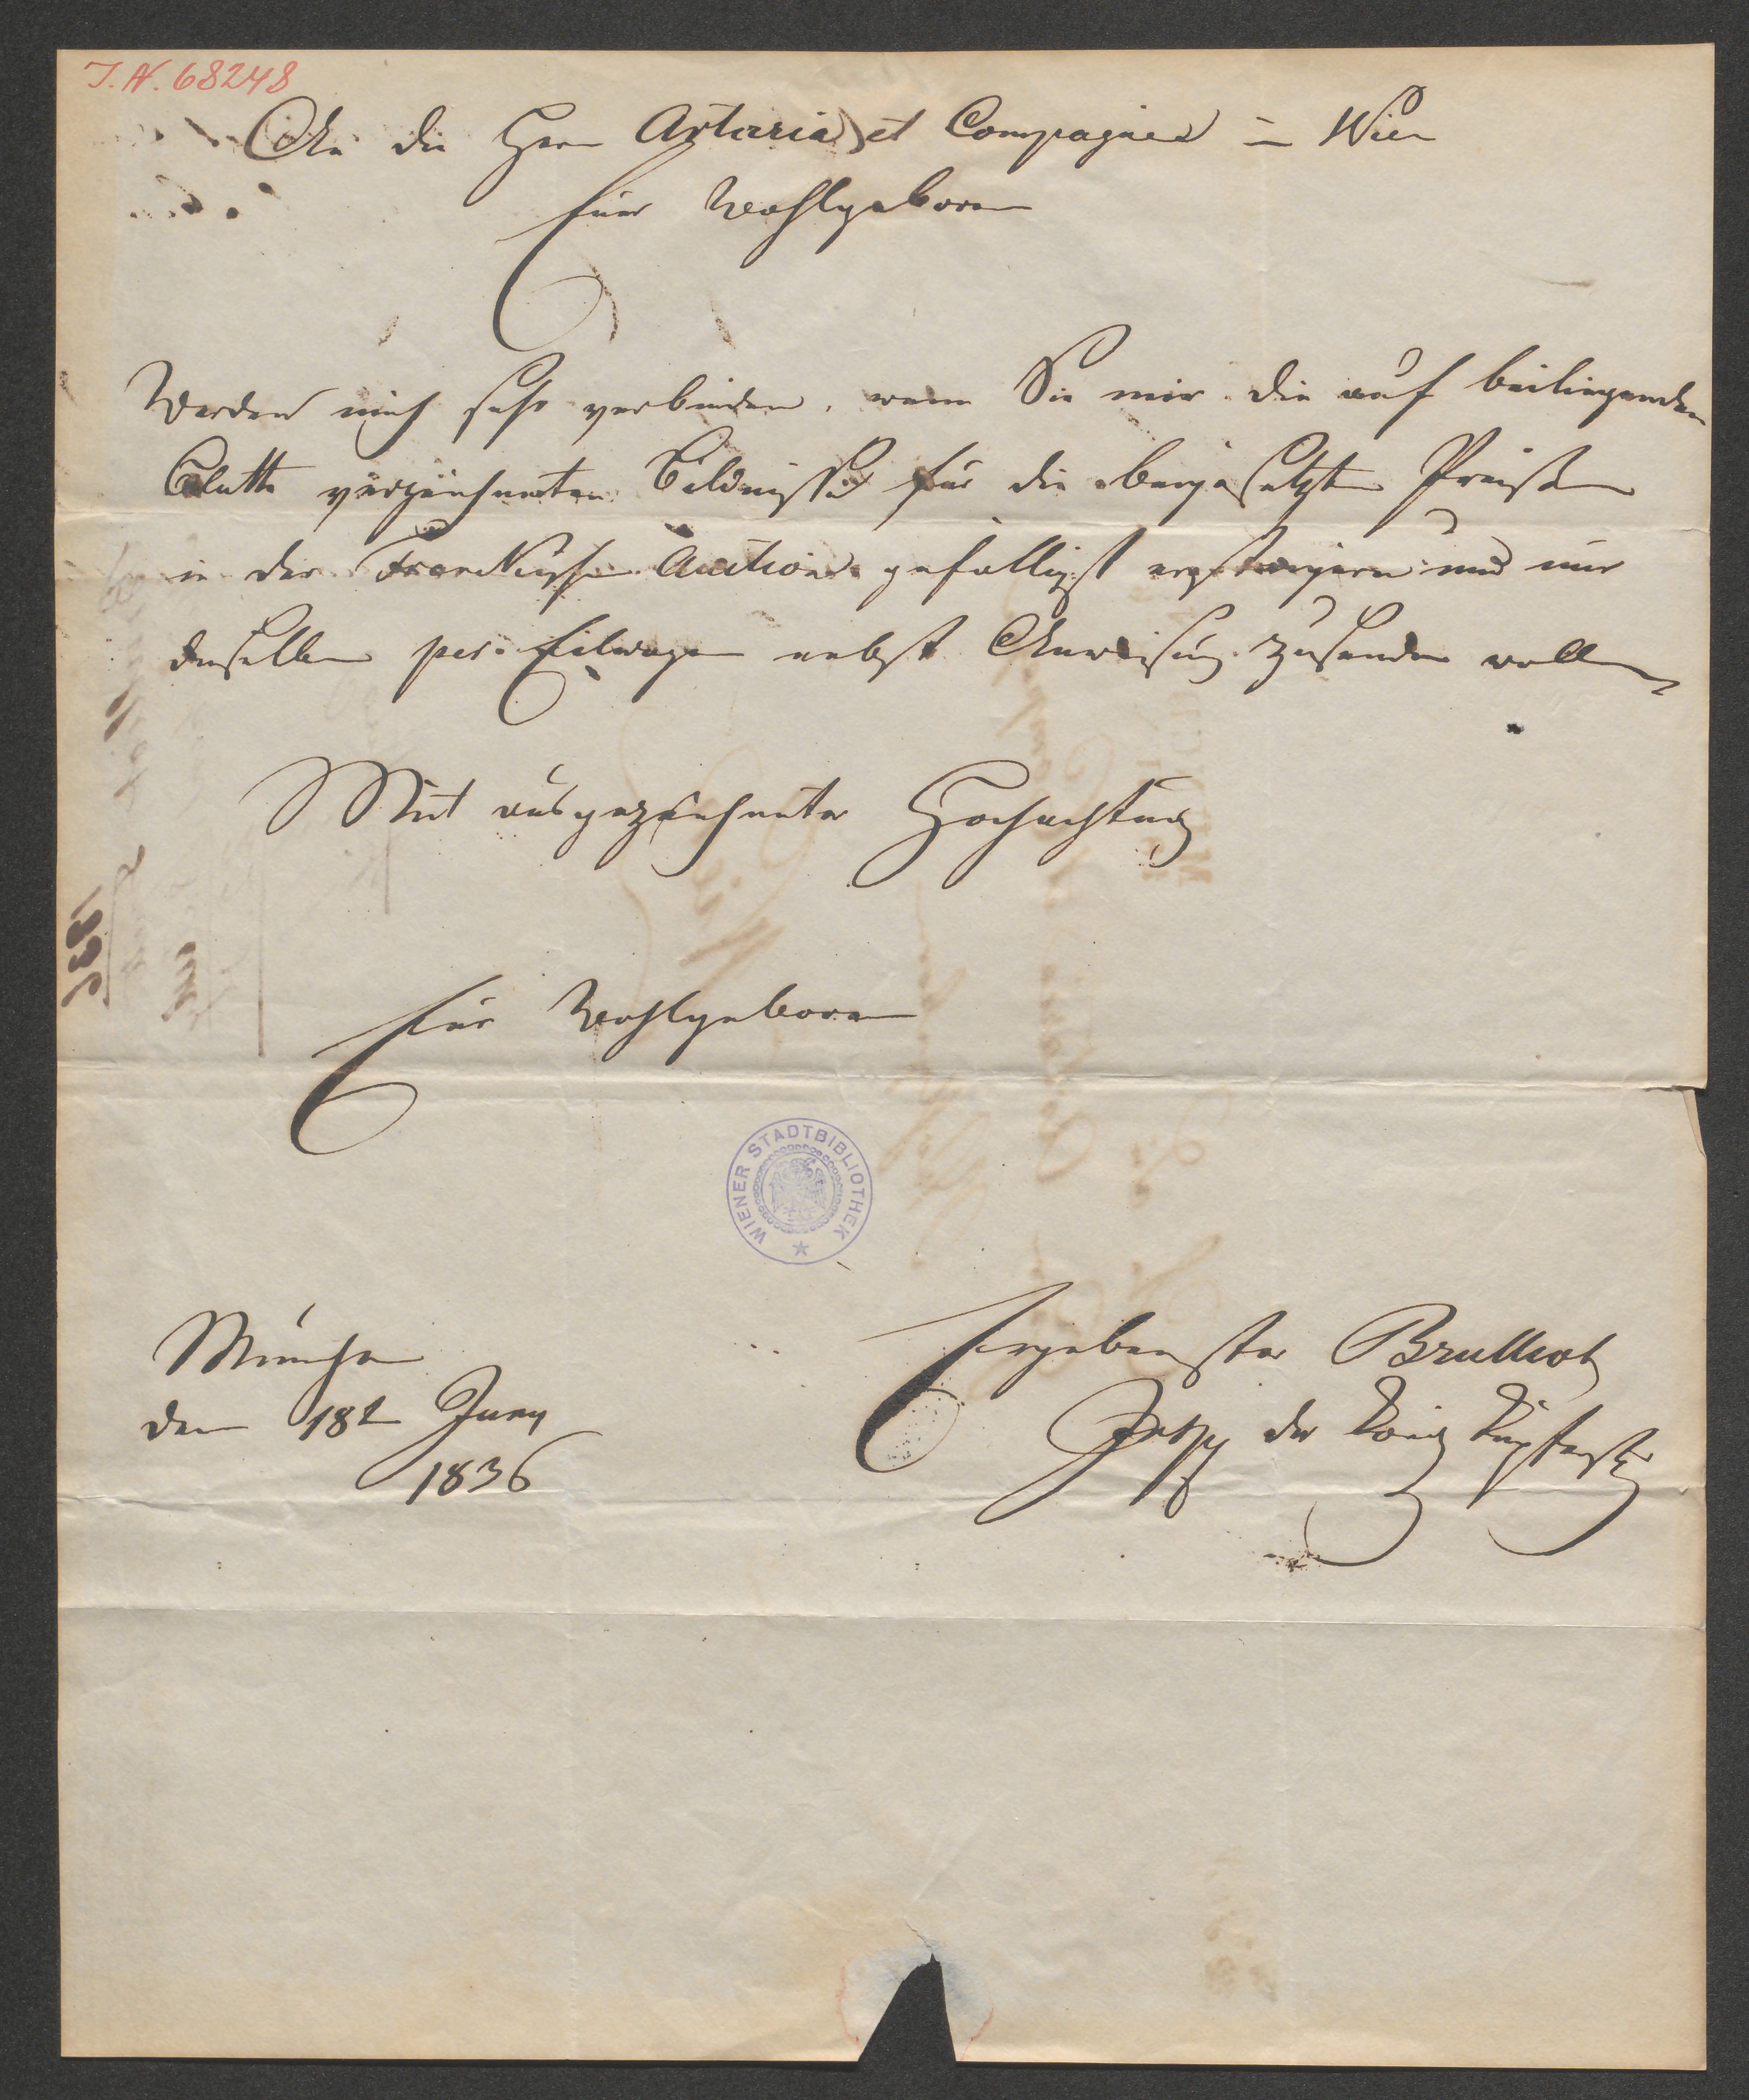 J. N. 68248
An die Herrn Artaria et Compagnie in Wien
Euer Wohlgeboren
Werden mich sehr verbinden, wenn Sie mir die auf beiliegenden
Blatte verzeichneten Bildnisse für die beigesetzten Preise
in der Franckischen Auction gefälligst ersteigern und mir
dieselben per Eilwagen nebst Anweisung zusenden wollen
Mit ausgezeichneter Hochachtung
Euer Wohlgeboren
WIENER STADTBIBLIOTHEK
München
den 18t Juny
1836
Ergebenster Brulliot
der König Kupferst